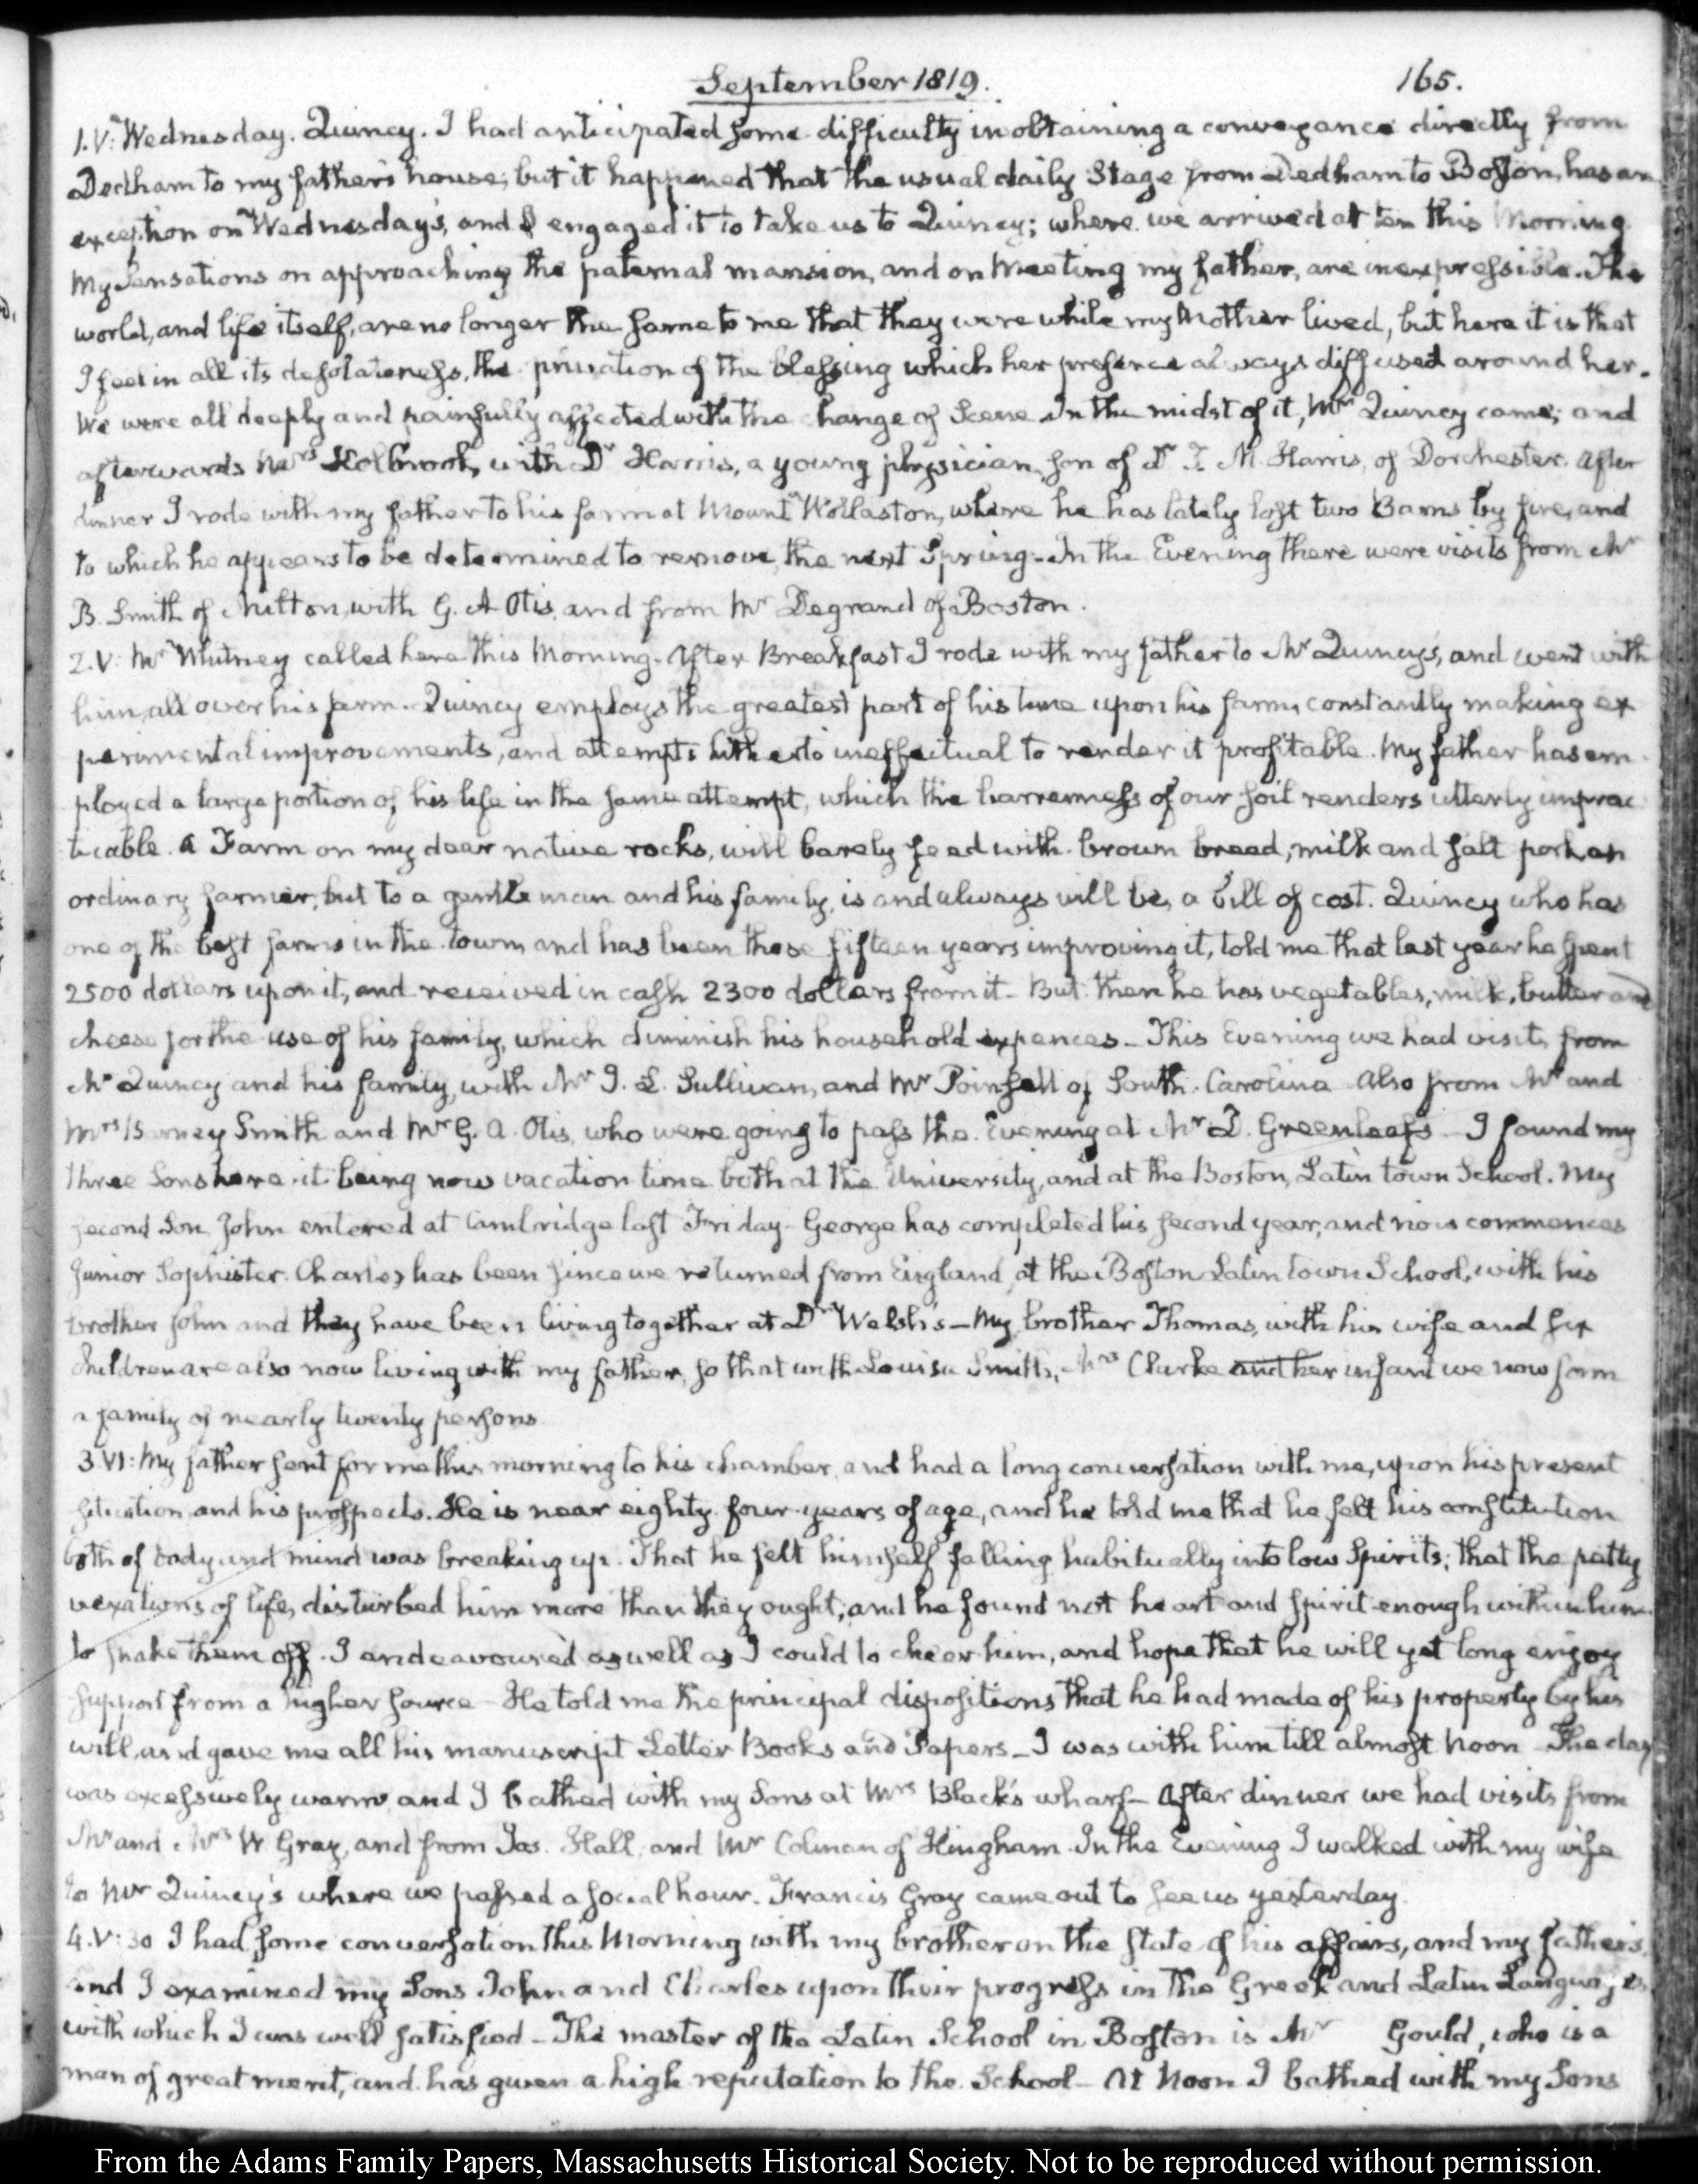 September 1819.
165.
1. V: Wednesday. Quincy. I had anticipated some difficulty in obtaining a conveyance directly from
Dedham to my father's house; but it happened that the usual daily Stage from Dedham to Boston, has an
exception on Wednesday's, and I engaged it to take us to Quincy; where we arrived at ten this Morning.
My Sensations on approaching the paternal mansion, and on meeting my father, are inexpressible. The
world, and life itself, are no longer the same to me that they were while my Mother lived, but here it is that
I feel in all its desolateness, the privation of the blessing which her presence always diffused around her.
We were all deeply and painfully affected with the change of Scene. In the midst of it, Mr Quincy came; and
afterwards Mrs Holbrook, with Dr Harris, a young physician, son of Dr T. M. Harris, of Dorchester. After
dinner I rode with my father to his farm at Mount Wollaston, where he has lately lost two Barns by fire, and
to which he appears to be determined to remove, the next Spring - In the Evening there were visits from Mr
B. Smith of Milton, with G. A Otis, and from Mr Degrand of Boston.
2. V: Mr Whitney called here this Morning. After Breakfast I rode with my father to Mr Quincy's, and went with
him, all over his farm. Quincy employs the greatest part of his time upon his farm, constantly making ex
perimental improvements, and attempts hitherto ineffectual to render it profitable. My father has em-
ployed a large portion of his life in the same attempt, which the barrenness of our soil renders utterly imprac
ticable. A Farm on my dear native rocks, will barely feed with brown bread, milk and salt pork, an
ordinary farmer, but to a gentleman and his family, is and always will be, a bill of cost. Quincy who has
one of the best farms in the town and has been these fifteen years improving it, told me that last year he spent
2500 dollars upon it, and received in cash 2300 dollars from it - But then he has vegetables, milk, butter and
cheese for the use of his family, which diminish his household expences - This Evening we had visits from
Mr Quincy and his family, with Mr J. L. Sullivan, and Mr Poinsett of South Carolina. Also from Mr and
Mrs Barney Smith and Mr G. A. Otis, who were going to pass the Evening at Mr D. Greenleaf's - I found my
three Sons here it being now vacation time both at the University, and at the Boston, Latin town School. My
second Son John entered at Cambridge last Friday - George has completed his second year, and now commences
Junior Sophister. Charles has been since we returned from England, at the Boston Latin town School, with his
brother John and they have been living together at Dr Welsh's - My brother Thomas, with his wife and six
Children are also now living with my father, so that with Louisa Smith, Mrs Clarke and her infant we now form
a family of nearly twenty persons
3. VI: My father sent for me this morning to his chamber, and had a long conversation with me, upon his present
situation and his prospects. He is near eighty four years of age, and he told me that he felt his constitution
both of body and mind was breaking up. That he felt himself falling habitually into low Spirits; that the petty
vexations of life, disturbed him more than they ought, and he found not heart and spirit enough within him
to shake them off. I endeavoured as well as I could to cheer him, and hope that he will yet long enjoy
support from a higher source - He told me the principal dispositions that he had made of his property by his
will, and gave me all his manuscript Letter Books and Papers - I was with him till almost Noon - The day
was excessively warm, and I bathed with my Sons at Mrs Black's wharf - After dinner we had visits from
Mr and Mrs W Gray, and from Jos. Hall, and Mr Colman of Hingham. In the Evening I walked with my wife
to Mr Quincy's where we passed a social hour. Francis Gray came out to see us yesterday.
4. V:30 I had some conversation this Morning with my brother on the state of his affairs, and my father's,
and I examined my Sons John and Charles upon their progress in the Greek and Latin Languages,
with which I was well satisfied - The master of the Latin School in Boston is Mr Gould, who is a
man of great merit, and has given a high reputation to the School - At Noon I bathed with my Sons
From the Adams Family Papers, Massachusetts Historical Society. Not to be reproduced without permission.